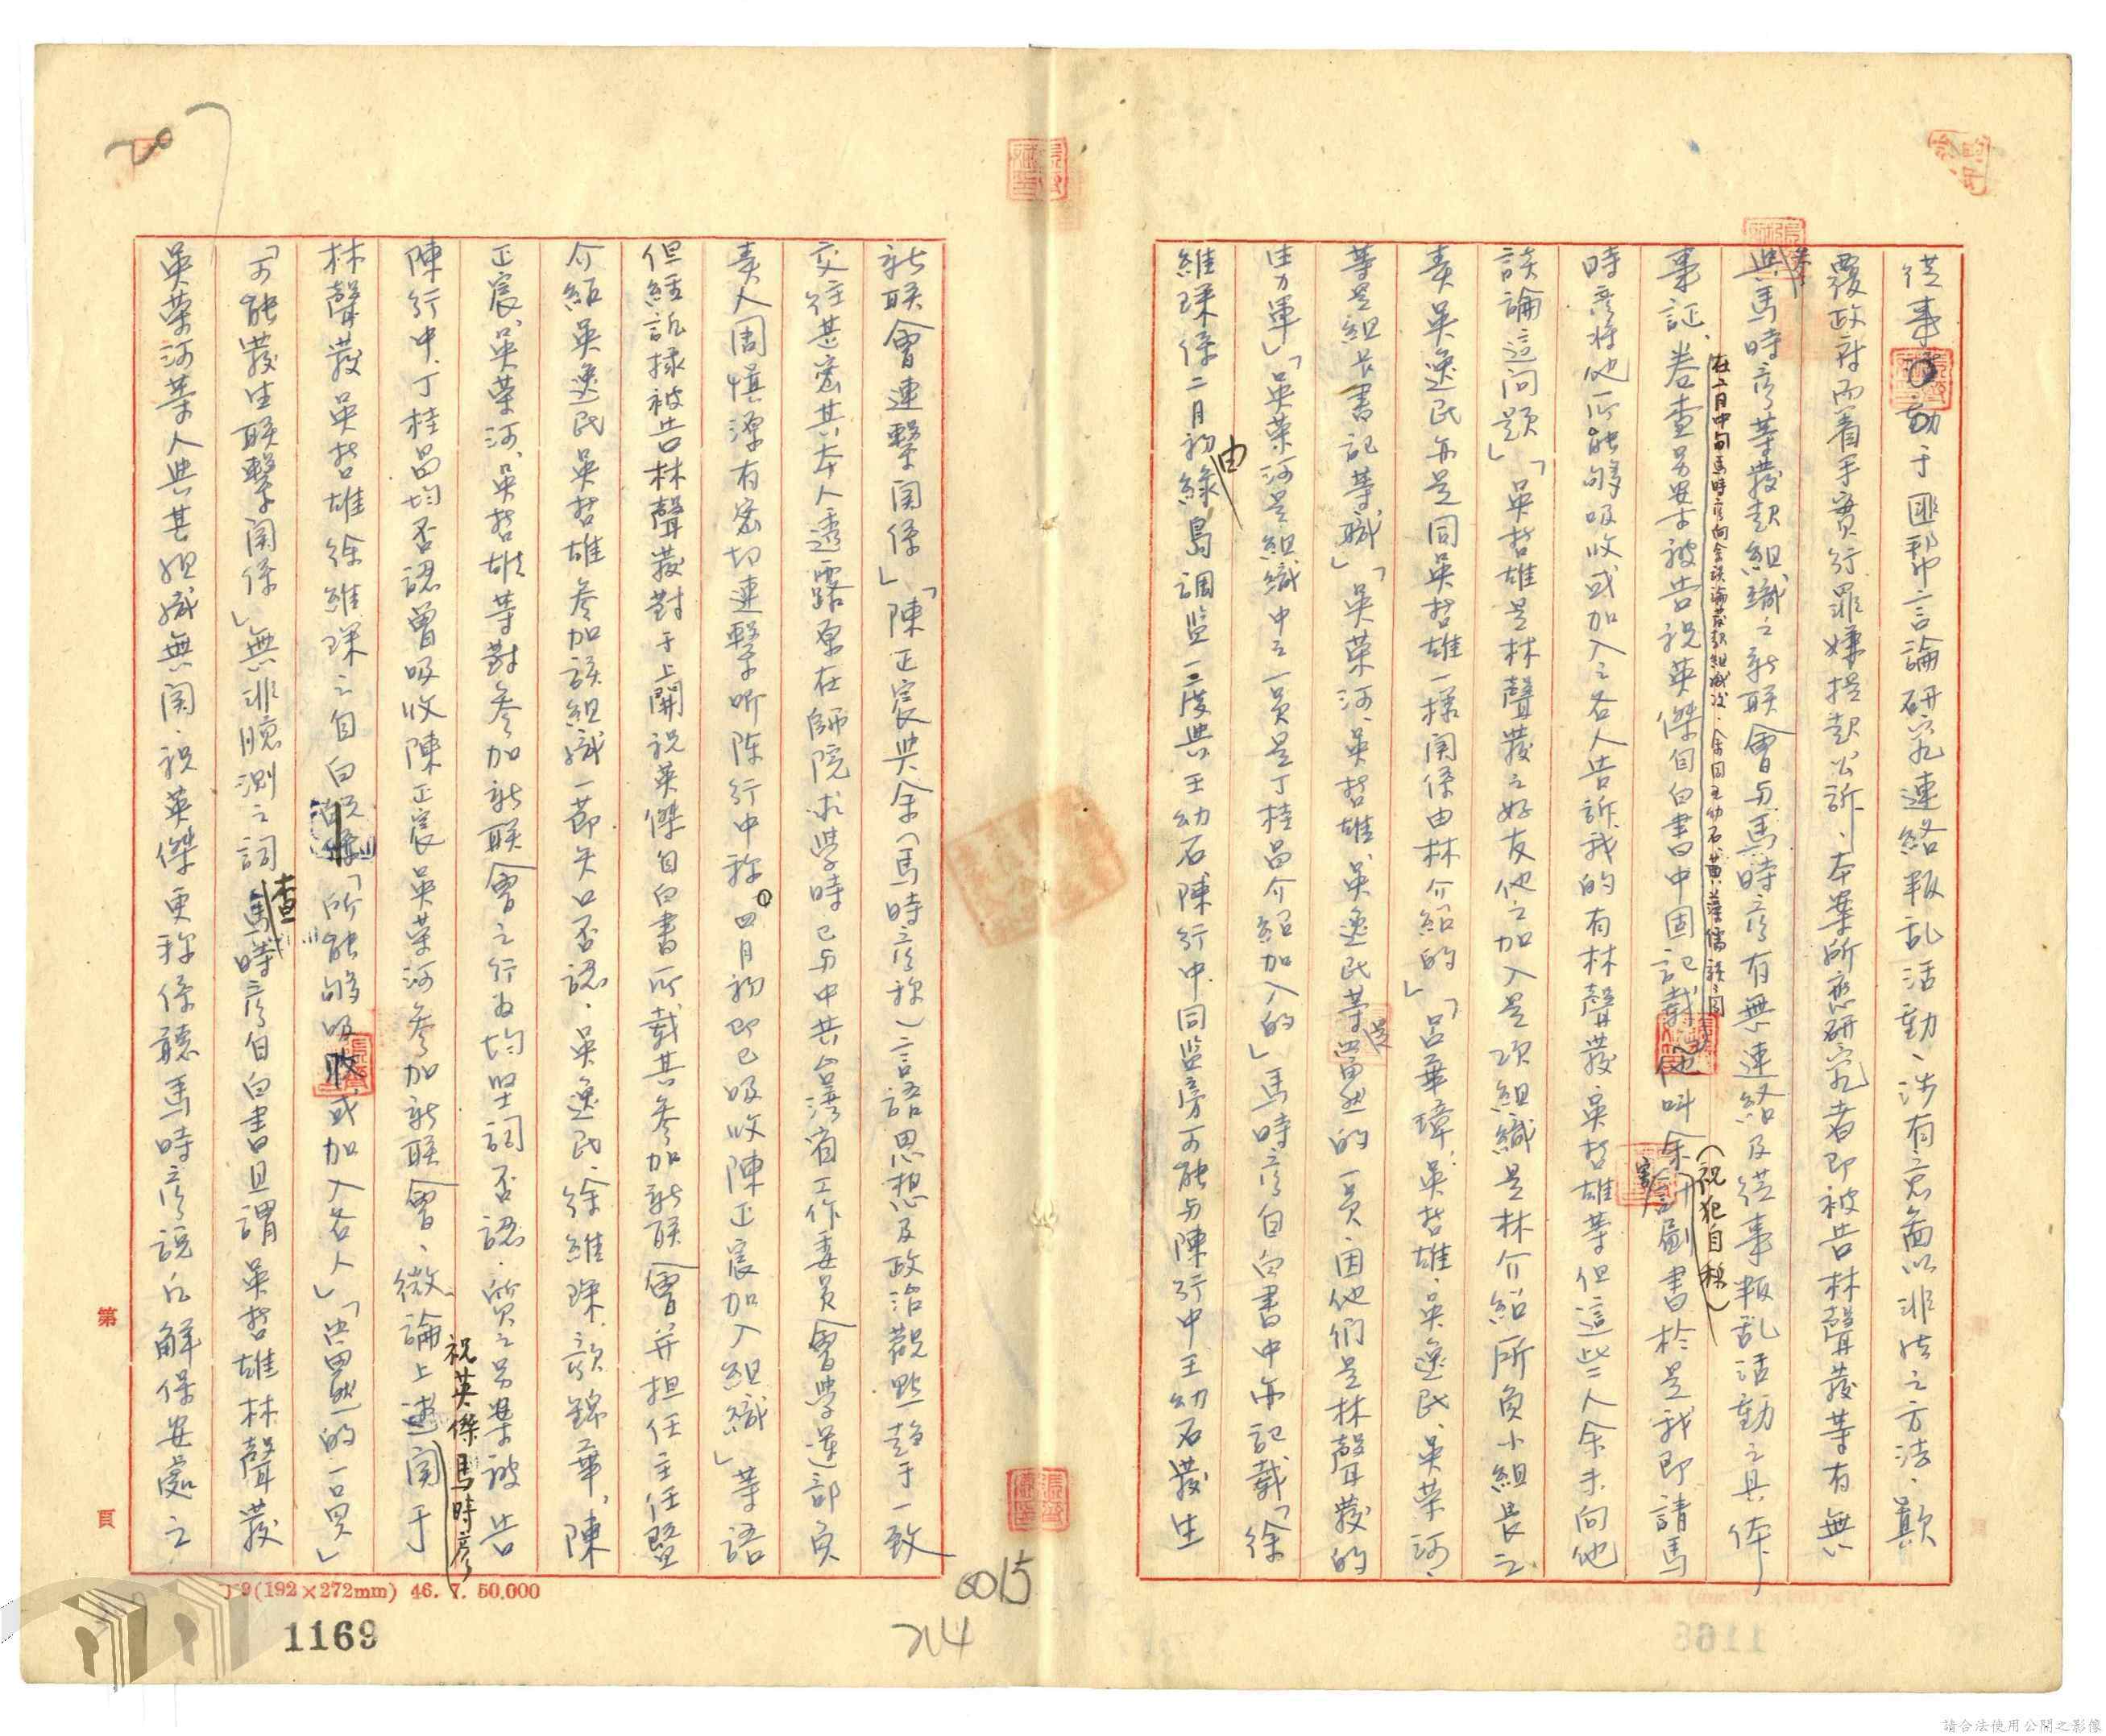 從事活動于匪幫言論研究連絡叛乱活動、涉有意圖以非法之方法、顛
覆政府而着手實行罪嫌提起公訴、本案所應研究者即被告林聲發等有無
參與馬時彥等發起組織之新联會与馬時彥有無連絡及從事叛乱活動之具体
事証、卷查另案被告祝英傑自白書中固記載「他叫余(祝犯自称)計劃書於是我即請馬
在二月中旬馬時彥向余談論發起組織後、余因王幼石、黃
時彥將他所能够吸收或加入之各人告訴我的有林聲發吳哲雄等但這些人余未向他
談論這问题」「吳哲雄是林聲發之好友他之加入是项組織是林介紹所負小組長之
責吳逸民亦是同吳哲雄一樣関係由林介紹的」「呂華璋、吳哲雄、吳逸民、吳荣河、
等是組長書記等職」「吳荣河、吳哲雄、吳逸民等是當然的一員、因他們是林聲發的
生力軍」「吳荣河是組織中之一員是丁桂昌介紹加入的」馬時彥自白書中亦記載「徐
維琛係二月初由綠島調监二度與王幼石陳行中同监旁可能与陳行中王幼石發生
新联會連繫関係」「陳正宸與余(馬時彥称)言語思想及政治觀點趋于一致
交往甚密其本人透露原在師院求學時已与中共台湾省工作委員會學運部負
責人周慎源有密切連繫听陈行中称。四月初即已吸收陳正宸加入組織」等語
但經訊據被告林聲發對于上開祝英傑自白書所載其參加新联會并担任主任暨
介紹吳逸民吳哲雄參加該組織一節矢口否認、吳逸民、徐維琛、顏錦華、陳
正宸、吳荣河、吳哲雄等對參加新联會之行为均堅詞否認、質之另案被告
陳行中、丁桂昌均否認曾吸收陳正宸吳荣河參加新联會、微論上述関于
祝英傑馬時彥
林聲發吳哲雄徐維琛之自白「所能够吸收或加入各人」「當然的一員」
「可能發生联繫関係」無非臆測之詞查馬時彥自白書且謂吳哲雄林聲發
吳荣河等人與其組織無関、祝英傑更称係聽馬時彥說后解保安處之
第 頁
J 9(192×272mm) 46. 7. 50.000
1169
0015
214
請合法使用公開之影像